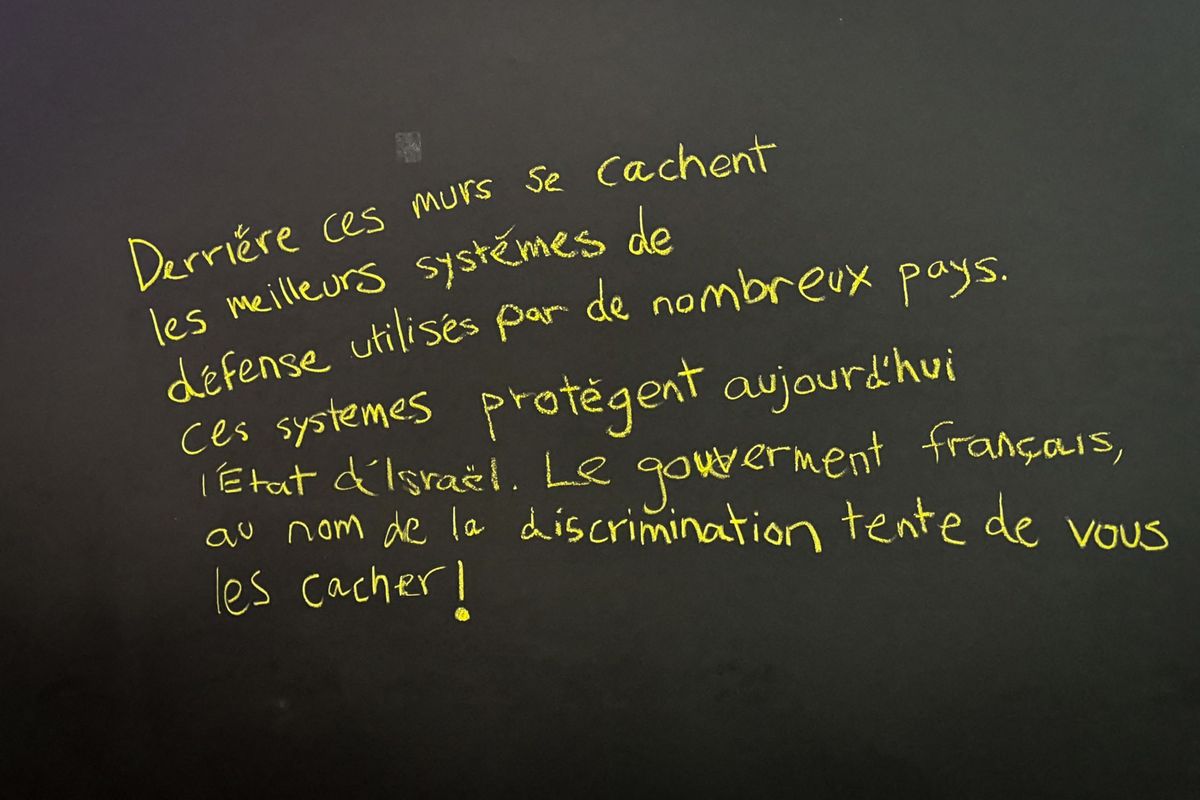 Derriére ces murs se cachent
les meilleurs systémes de
défense utilisés par de nombreux pays.
Ces systemes protègent aujourd'hui
l'État d'Israël. Le gouverment français,
au nom de la discrimination tente de vous
les cacher!